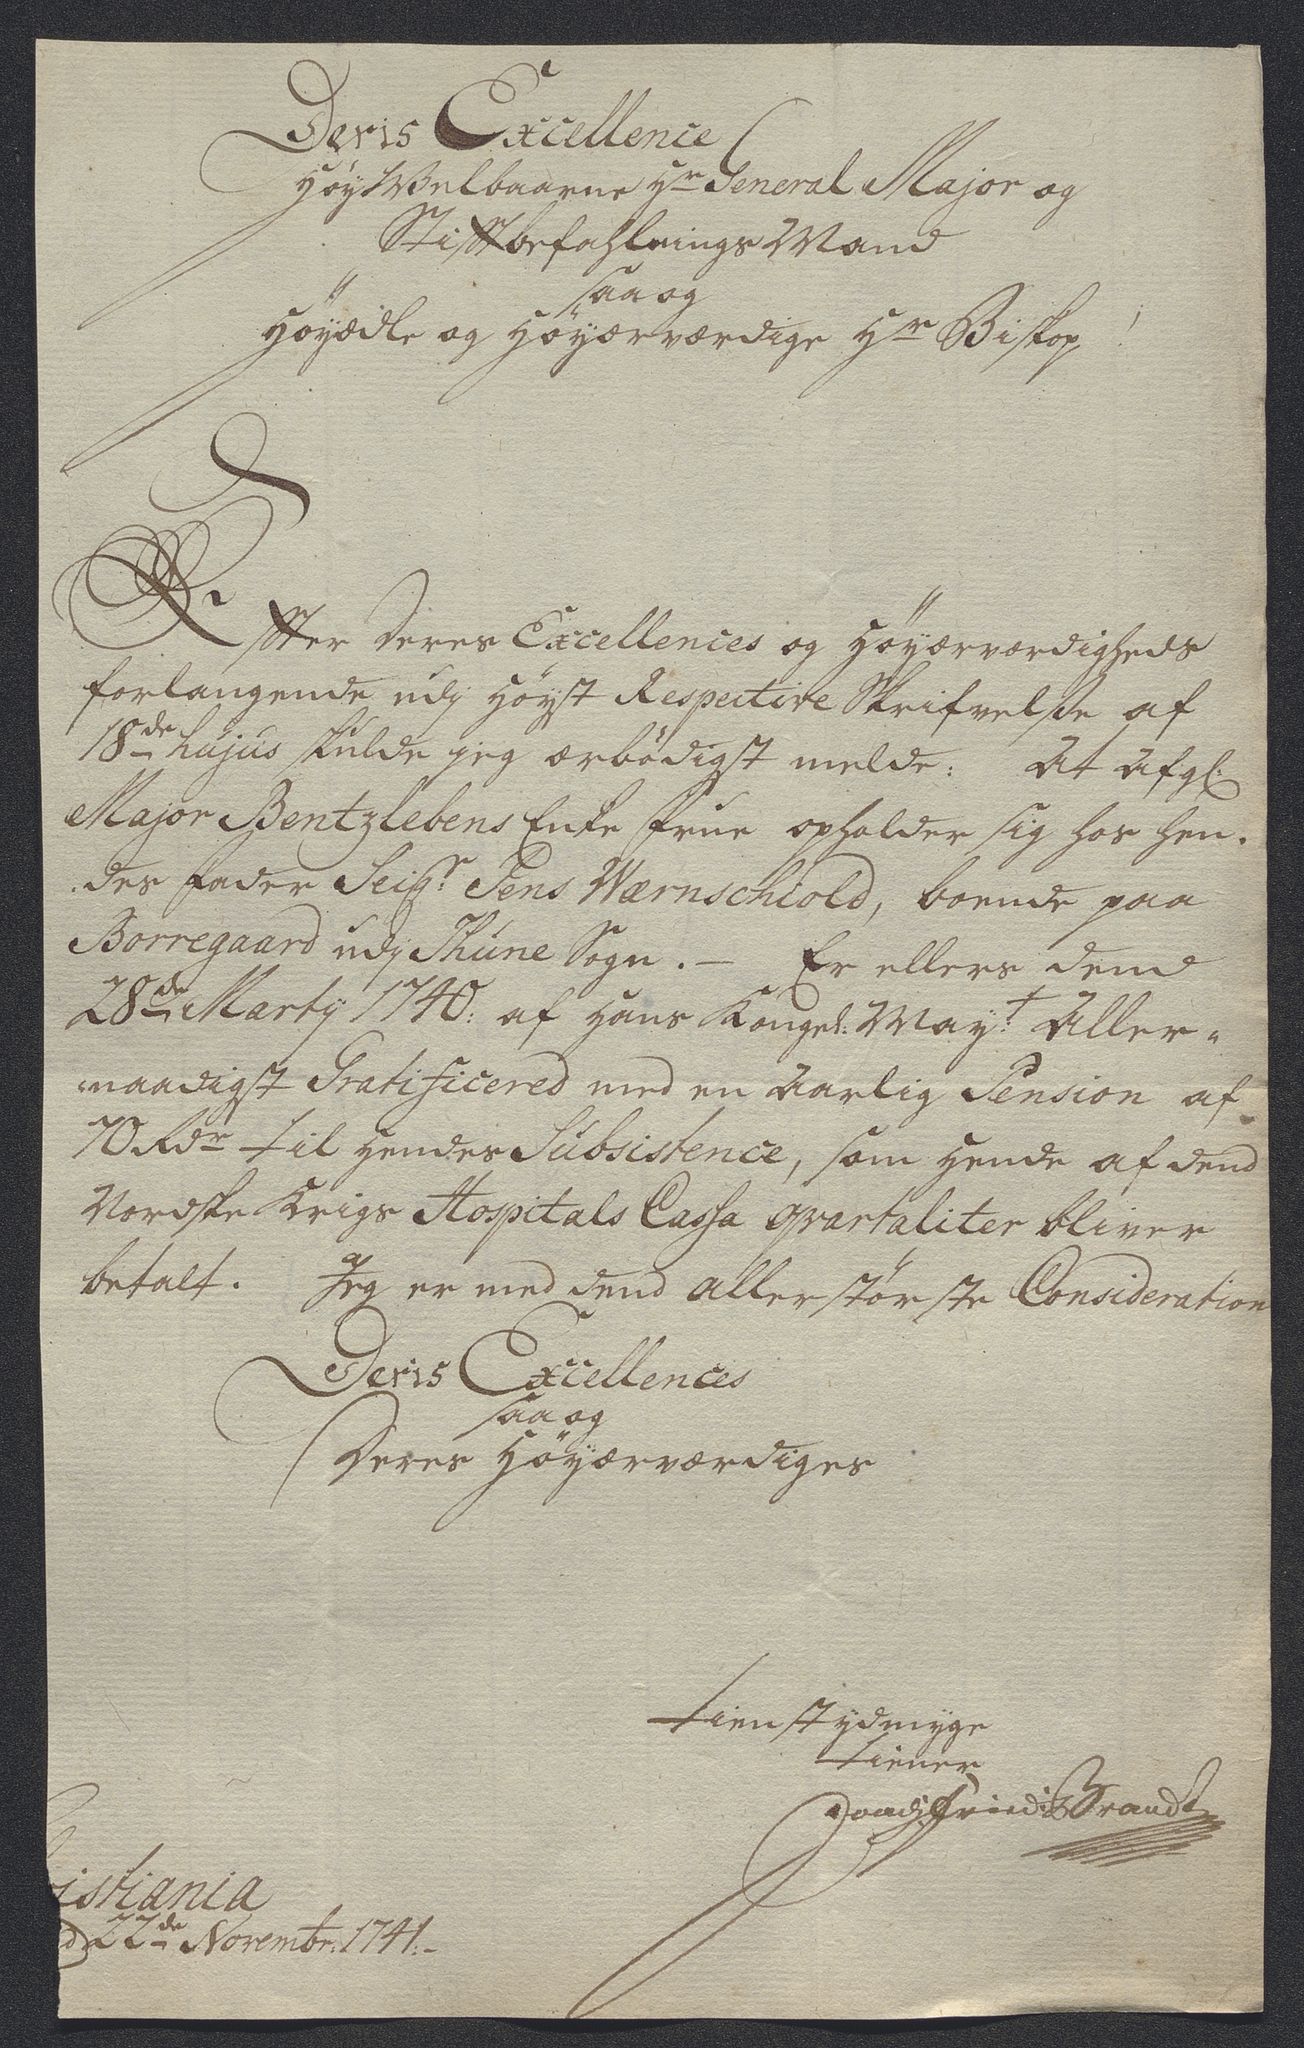 Deris Excellence
Høy Welbaarne Hr General Major og
Stiftbefahlnings Mand
saa og
Høyædle og Høyærværdige Hr Biskop
Effter Deres Excellences og Høyærværdigheds
forlangende udj Høyst Respective Skrifvelse af
18de hujus skulde jeg ærbødigst melde: At Afgl:
Major Bentzlebens Enke Frue opholder sig hos hen-
des Fader Seigr: Jens Wærnschiold, boende paa
Borregaard udj Thune Sogn. - Er ellers dend
28de Marty 1740: af Hans Kongel: Mayt: Aller-
naadigst Gratificered med en Aarlig Pension af
70 Rdr til Hendes Subsistence, som Hende af dend
Nordske Krigs Hospitals Cassa qvartaliter bliver
betalt. Jeg er med dend allerstørste Consideration
Deris Excellences
saa og
Deres Høyærværdiges
tienstydmyge
tiener
Joach Fridr Brandt
istiania
d 22de Novembr: 1741.-